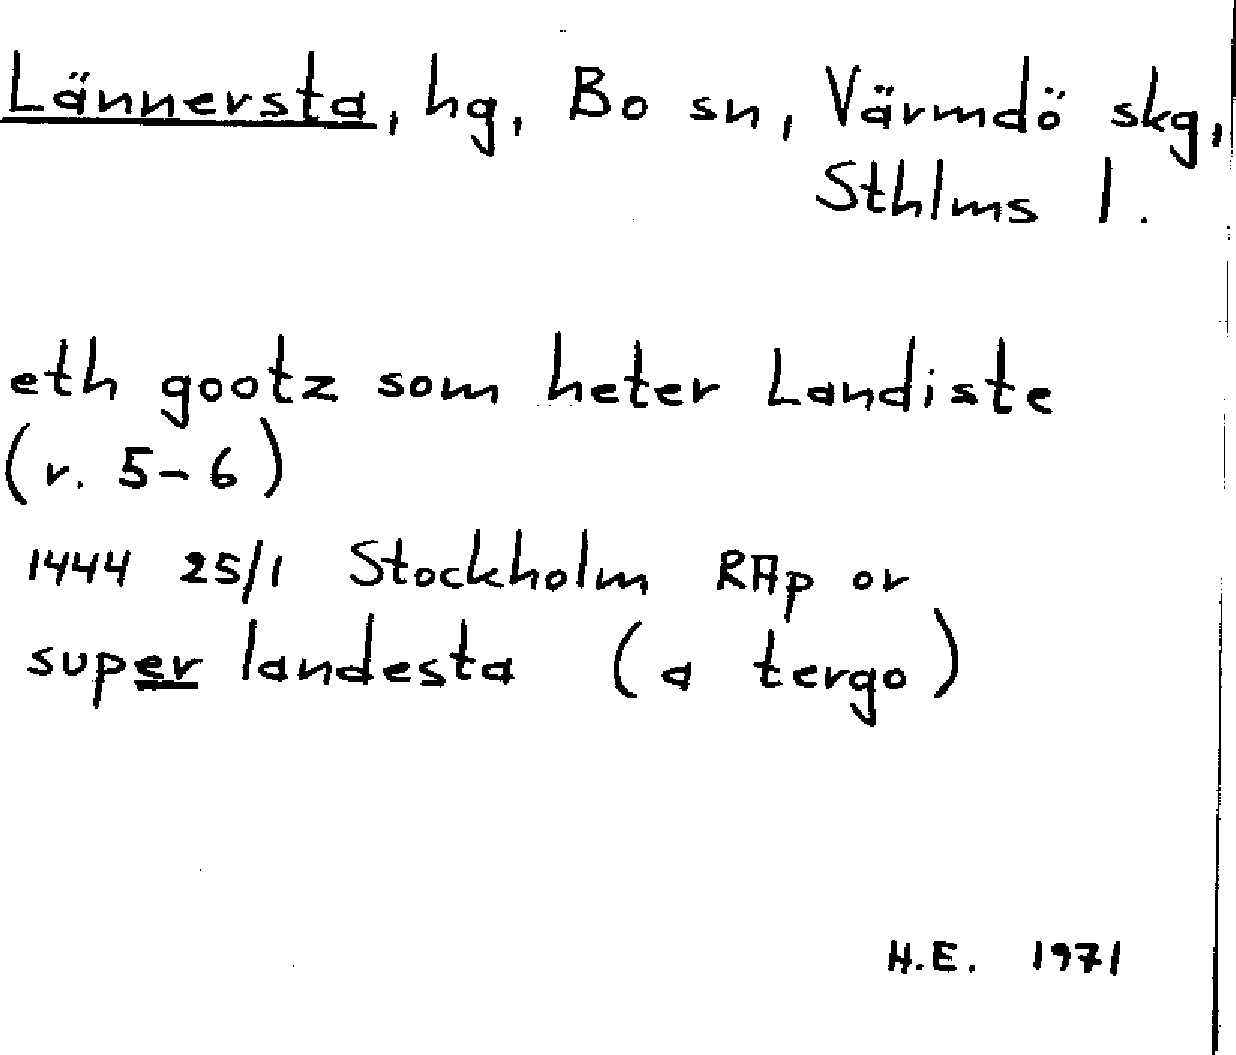 Lännersta, hg, Bo sn, Värmdö skg,
Sthlms l.
eth gootz som heter Landiste
(r. 5-6)
1444 25/1 Stockholm RAp or
super landesta (a tergo)
H.E. 1971